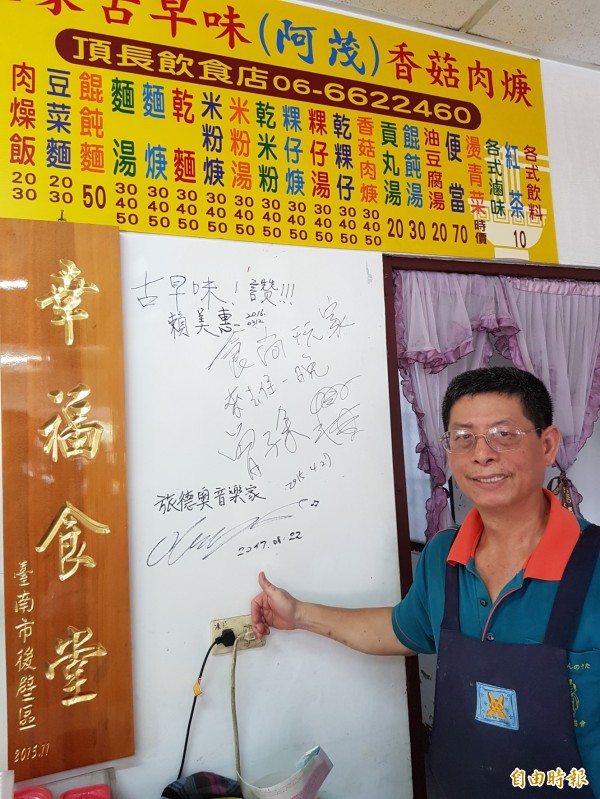 家古早味(阿茂)香菇肉焿
頂長飲食店06-6622460
肉燥飯 20 30
豆菜麵 20 30
餛飩麵 50
麵湯 30 40 50
麵焿 30 40 50
乾麵 30 40 50
米粉焿 30 40 50
米粉湯 30 40 50
乾米粉 30 40 50
粿仔焿 30 40 50
粿仔湯 30 40 50
乾粿仔 30 40 50
香菇肉焿 30 40 50
貢丸湯 20
餛飩湯 30
油豆腐湯 20
便當 70
燙青菜 時價
各式滷味
紅茶 10
各式飲料
幸福食堂
臺南市後壁區
2015.11
古早味!讚!!!
賴美惠 2016.
食尚玩家
一晚
2015.4.27
張德奧音樂家
2017.08.22
自由時報